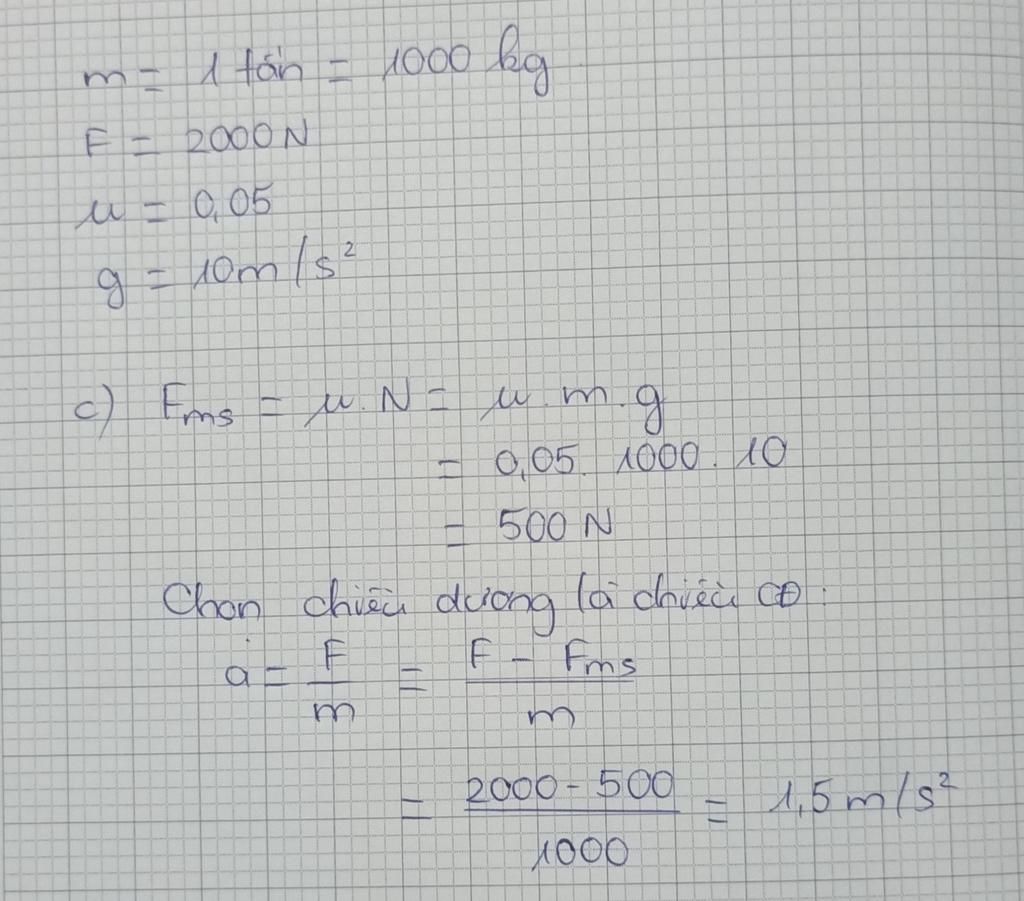 m = 1 tấn = 1000 kg
F = 2000 N
μ = 0,05
g = 10 m/s²
c) Fms = μ. N = μ. m. g
= 0,05. 1000. 10
= 500 N
Chọn chiều dương là chiều CĐ:
a = F/m = (F - Fms)/m
= (2000 - 500)/1000 = 1,5 m/s²